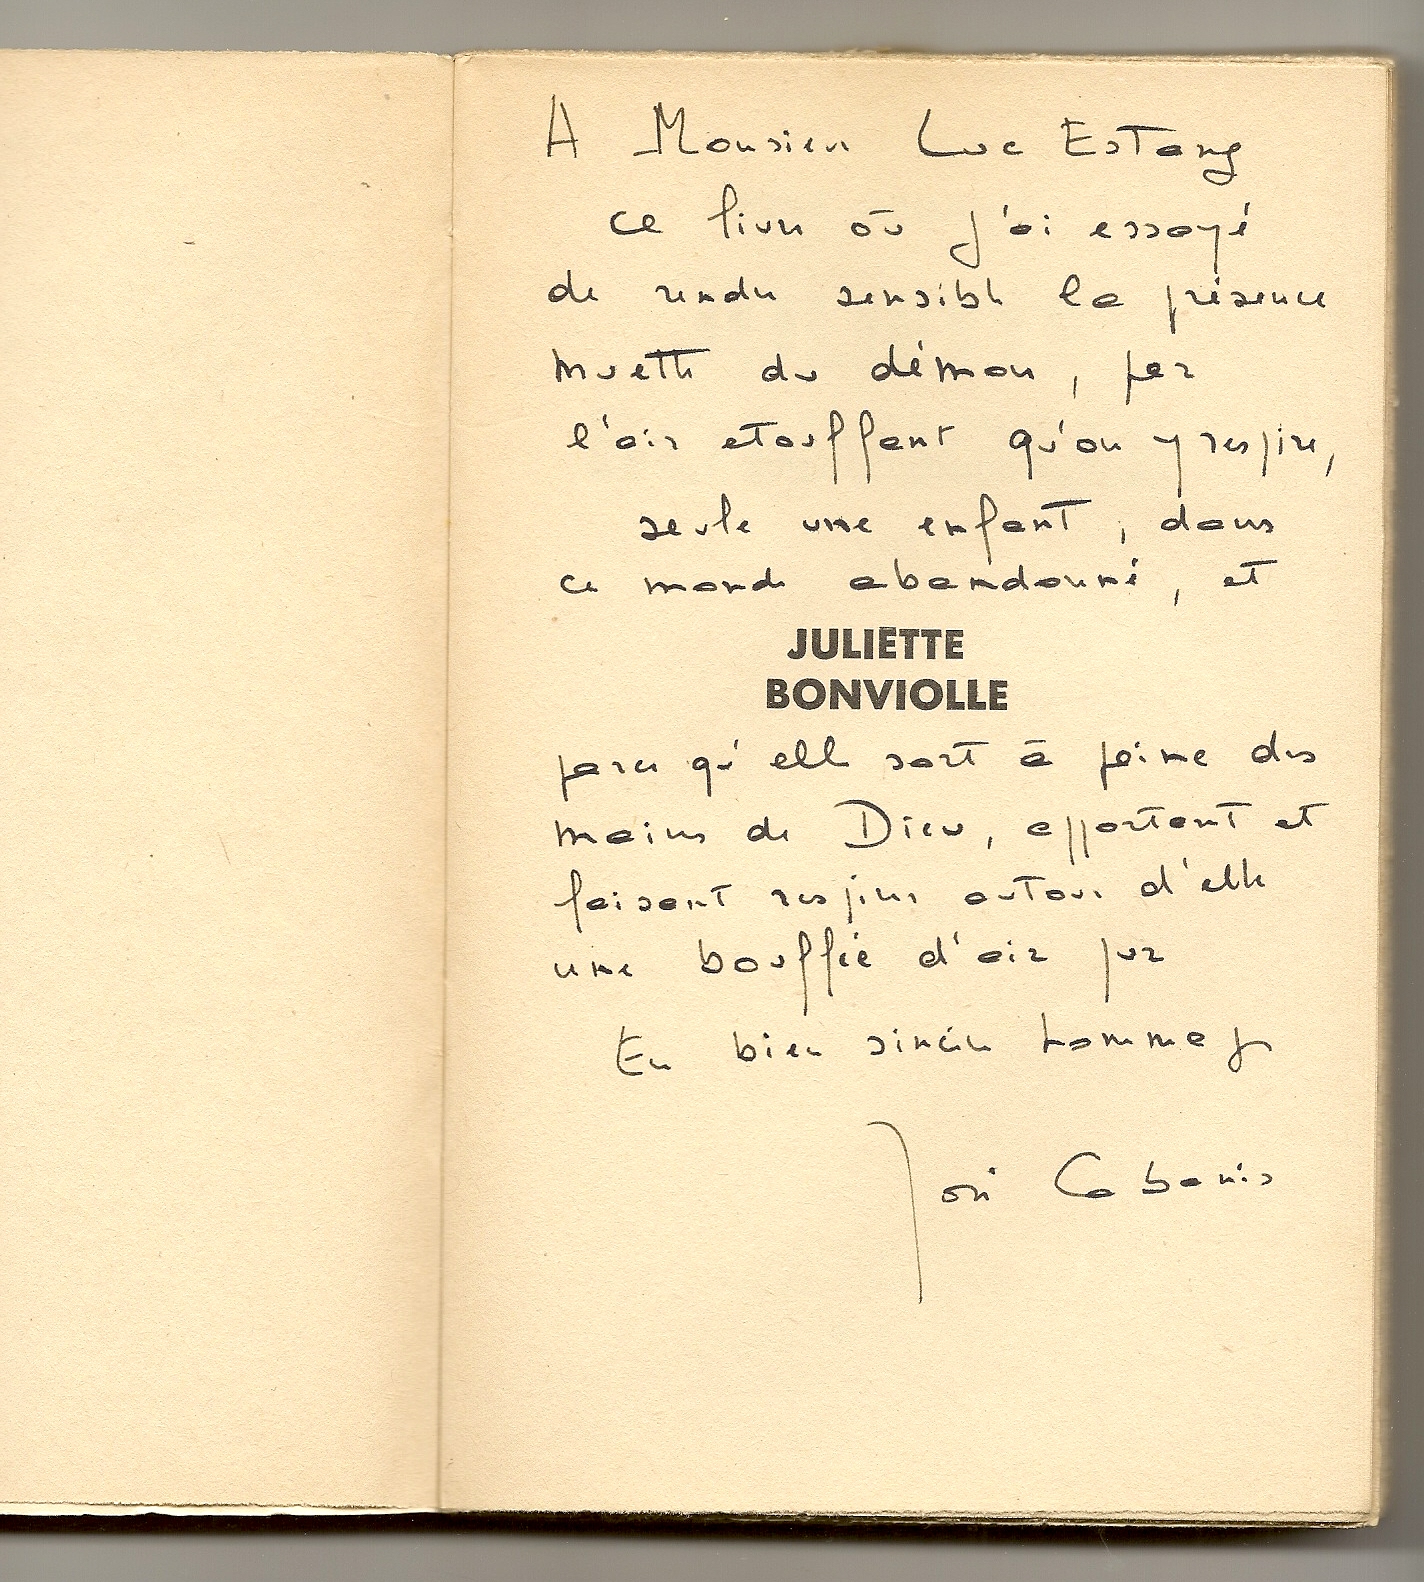 A Monsieur Luc Estang
ce livre où j'ai essayé
de rendre sensible la présence
muette du démon, par
l'air etouffant qu'on y respire,
seule une enfant, dans
ce monde abandonné, et
JULIETTE
BONVIOLLE
parce qu'elle sort à peine des
mains de Dieu, apportant et
faisant respirer autour d'elle
une bouffée d'air pur
En bien sincère hommage
José Cabanis